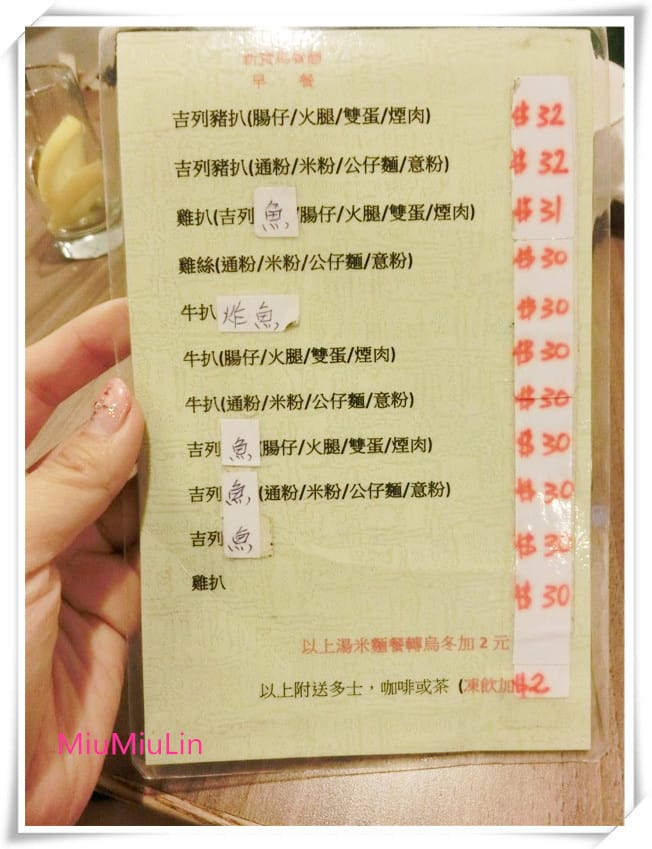 早 餐
吉列豬扒(腸仔/火腿/雙蛋/煙肉) $32
吉列豬扒(通粉/米粉/公仔麵/意粉) $32
雞扒(吉列魚/腸仔/火腿/雙蛋/煙肉) $31
雞絲(通粉/米粉/公仔麵/意粉) $30
牛扒 炸魚 $30
牛扒(腸仔/火腿/雙蛋/煙肉) $30
牛扒(通粉/米粉/公仔麵/意粉) $30
吉列魚(腸仔/火腿/雙蛋/煙肉) $30
吉列魚(通粉/米粉/公仔麵/意粉) $30
吉列魚 $30
雞扒 $30
以上湯米麵餐轉烏冬加 2 元
以上附送多士，咖啡或茶 (凍飲加$2
MiuMiuLin